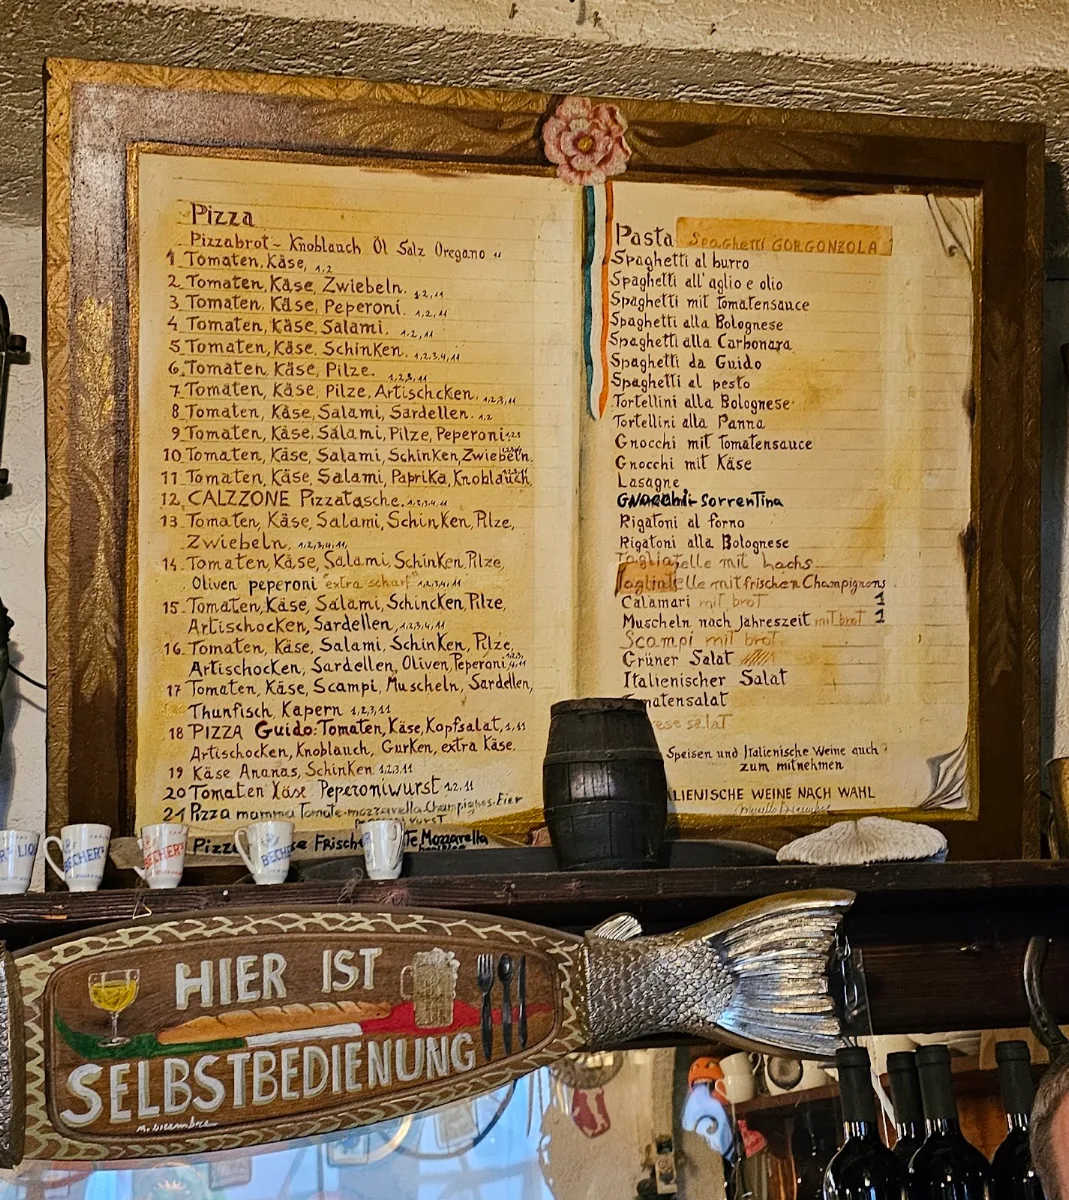 Pizza
Pizzabrot - Knoblauch Öl Salz Oregano 11
1 Tomaten, Käse, 1,2
2 Tomaten, Käse, Zwiebeln. 1,2,11
3 Tomaten, Käse, Peperoni. 1,2,11
4 Tomaten, Käse, Salami. 1,2,11
5 Tomaten, Käse, Schinken. 1,2,3,4,11
6 Tomaten, Käse, Pilze. 1,2,3,11
7 Tomaten, Käse, Pilze, Artischcken. 1,2,3,11
8 Tomaten, Käse, Salami, Sardellen. 1,2
9 Tomaten, Käse, Salami, Pilze, Peperoni 1,2,3
10 Tomaten, Käse, Salami, Schinken, Zwiebeln.
11 Tomaten, Käse, Salami, Paprika, Knoblauch,
12 CALZZONE Pizzatasche. 1,2,3,4,11
13 Tomaten, Käse, Salami, Schinken, Pilze,
Zwiebeln, 1,2,3,4,11
14. Tomaten, Käse, Salami, Schinken, Pilze,
Oliven peperoni "extra scharf" 1,2,3,4,11
15. Tomaten, Käse, Salami, Schincken, Pilze,
Artischocken, Sardellen, 1,2,3,4,11
16. Tomaten, Käse, Salami, Schinken, Pilze,
Artischocken, Sardellen, Oliven, Peperoni
17 Tomaten, Käse, Scampi, Muscheln, Sardellen,
Thunfisch, Kapern 1,2,3,11
18 PIZZA Guido: Tomaten, Käse, Kopfsalat,
Artischocken, Knoblauch, Gurken, extra Käse.
19 Käse Ananas, Schinken 1,2,3,11
20 Tomaten Käse Peperoniwurst 1,2,11
21 Pizza mamma Tomate-mozzarella, Champignos. Eier
Mozzarella
Pasta Spaghetti GORGONZOLA
Spaghetti al burro
Spaghetti all'aglio e olio
Spaghetti mit Tomatensauce
Spaghetti alla Bolognese
Spaghetti alla Carbonara
Spaghetti da Guido
Spaghetti al pesto
Tortellini alla Bolognese
Tortellini alla Panna
Gnocchi mit Tomatensauce
Gnocchi mit Käse
Lasagne
Gnocchi-Sorrentina
Rigatoni al forno
Rigatoni alla Bolognese
Tagliatelle mit Lachs
Tagliatelle mit frischen Champignons
Calamari mit brot
Muscheln nach Jahreszeit mit brot
Scampi mit brot
Grüner Salat
Italienischer Salat
matensalat
ese salat
Speisen und Italienische Weine auch
zum mitnehmen
LIENISCHE WEINE NACH WAHL
BECHER'S
BECHER
BECHE
HIER IST
SELBSTBEDIENUNG